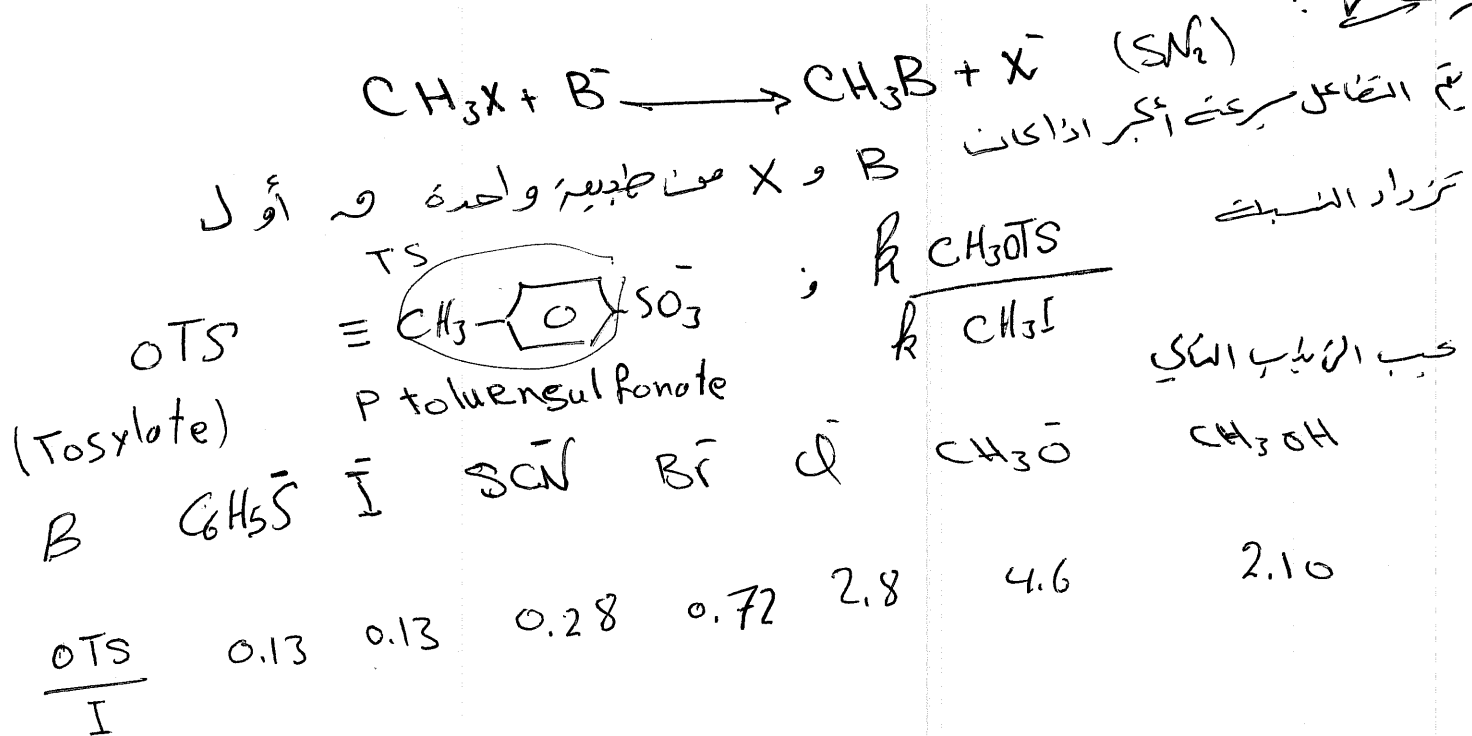 CH₃X + B⁻ ⟶ CH₃B + X⁻ (SN₂)
يتم التفاعل بسرعة أكبر اذا كانت
B و X من طبيعة واحدة
تزداد النسبة
k CH₃OTS / k CH₃I
TS
OTS ≡ CH₃-⌬-SO₃⁻ ;
(Tosylate) P toluensulfonate
حسب الترتيب التالي
B C₆H₅S⁻ I⁻ SCN⁻ Br⁻ Cl⁻ CH₃O⁻ CH₃OH
OTS / I 0.13 0.13 0.28 0.72 2.8 4.6 2.10